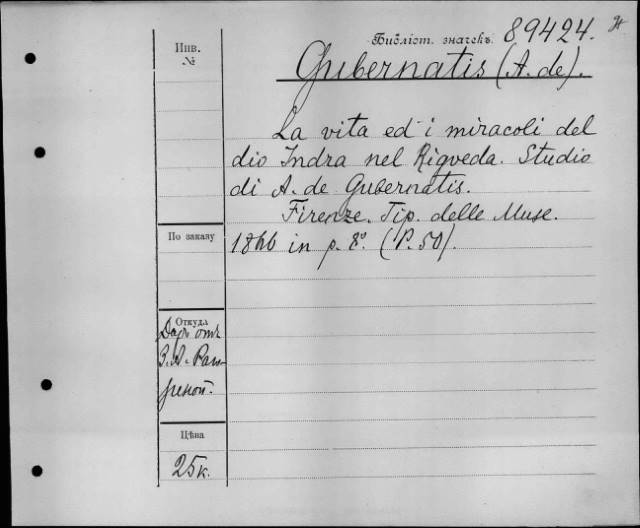 Бібліот. значекъ 89424.
Инв.
№
Gubernatis (A. de).
La vita ed i miracoli del
dio Indra nel Rigveda. Studio
di A. de Gubernatis.
Firenze. Tip. delle Muse.
1866 in p. 8º. (P. 50).
По заказу
Откуда
Даръ отъ
Цѣна
25 к.